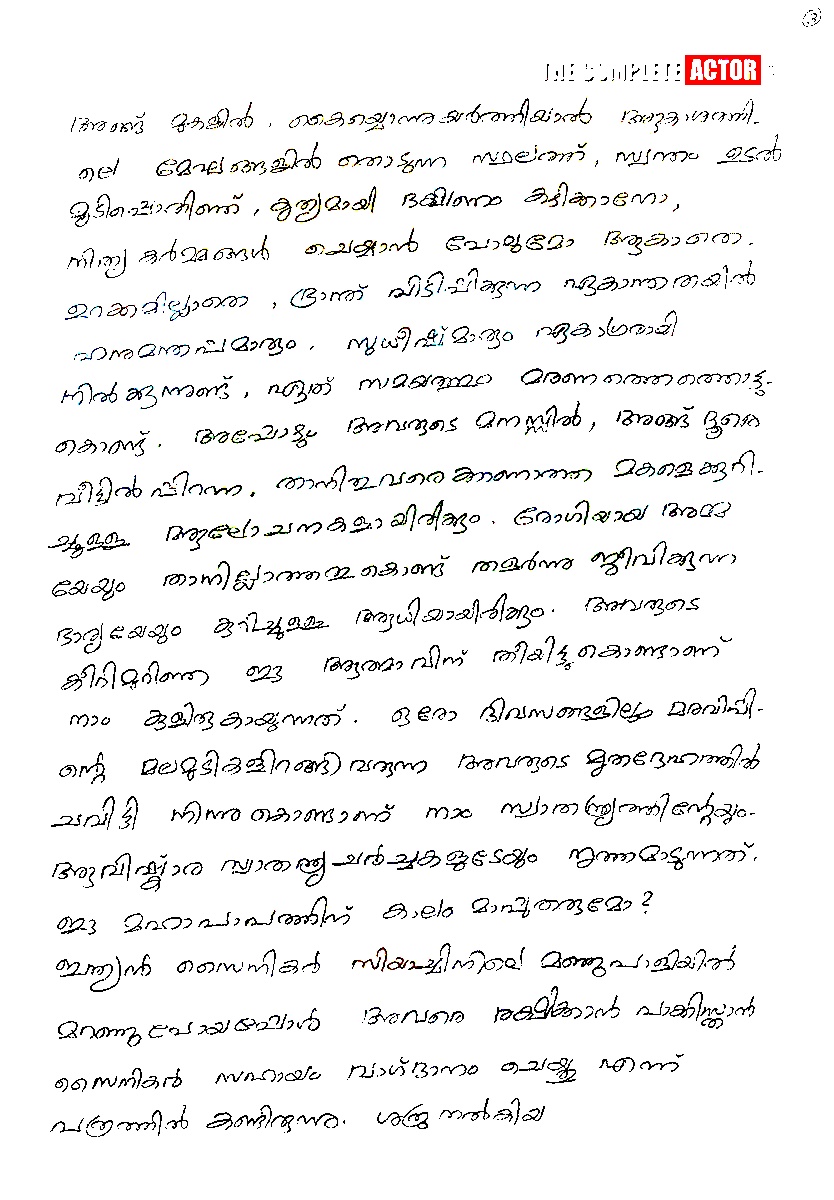 3
THE COMPLETE ACTOR
അങ്ങ് മുകളിൽ, കൈയ്യൊന്നുയർത്തിയാൽ ആകാശത്തി-
ലെ മേഘങ്ങളിൽ തൊടുന്ന സ്ഥലത്ത്, സ്വന്തം ഉടൽ
മൂടിപ്പൊതിഞ്ഞ്, കൃത്യമായി ഭക്ഷണം കഴിക്കാനോ,
നിത്യ കർമങ്ങൾ ചെയ്യാൻ പോലുമോ ആകാതെ.
ഉറക്കമില്ലാതെ, ഭ്രാന്ത് പിടിപ്പിക്കുന്ന ഏകാന്തതയിൽ
ഹനുമന്തപ്പമാരും. സുധീഷ്മാരും ഏകാഗ്രരായി
നിൽക്കുന്നുണ്ട്, ഏത് സമയത്തും മരണത്തെത്തൊട്ടു-
കൊണ്ട്. അപ്പോളും അവരുടെ മനസ്സിൽ, അങ്ങ് ദൂരെ
വീട്ടിൽ പിറന്ന, താനിതുവരെ കാണാത്ത മകളെക്കുറി-
ച്ചുള്ള ആലോചനകളായിരിക്കും. രോഗിയായ അമ്മ
യേയും താനില്ലാത്തതുകൊണ്ട് തളർന്നു ജീവിക്കുന്ന
ഭാര്യയേയും കുറിച്ചുള്ള ആധിയായിരിക്കും. അവരുടെ
കീറിമുറിഞ്ഞ ഈ ആത്മാവിന് തീയിട്ടുകൊണ്ടാണ്
നാം കുളിരുകായുന്നത്. ഒരോ ദിവസങ്ങളിലും മരവിപ്പി-
ന്റെ മലമുടികളിറങ്ങി വരുന്ന അവരുടെ മൃതദേഹത്തിൽ
ചവിട്ടി നിന്നുകൊണ്ടാണ് നാം സ്വാതന്ത്ര്യത്തിന്റേയും.
ആവിഷ്ക്കാര സ്വാതന്ത്ര്യ ചർച്ചകളുടേയും നൃത്തമാടുന്നത്.
ഈ മഹാപാപത്തിന് കാലം മാപ്പുതരുമോ?
ഇന്ത്യൻ സൈനികർ സിയാച്ചിനിലെ മഞ്ഞുപാളിയിൽ
മറഞ്ഞുപോയപ്പോൾ അവരെ രക്ഷിക്കാൻ പാക്കിസ്ഥാൻ
സൈനികർ സഹായം വാഗ്ദാനം ചെയ്തു എന്ന്
പത്രത്തിൽ കണ്ടിരുന്നു. ശത്രു നൽകിയ